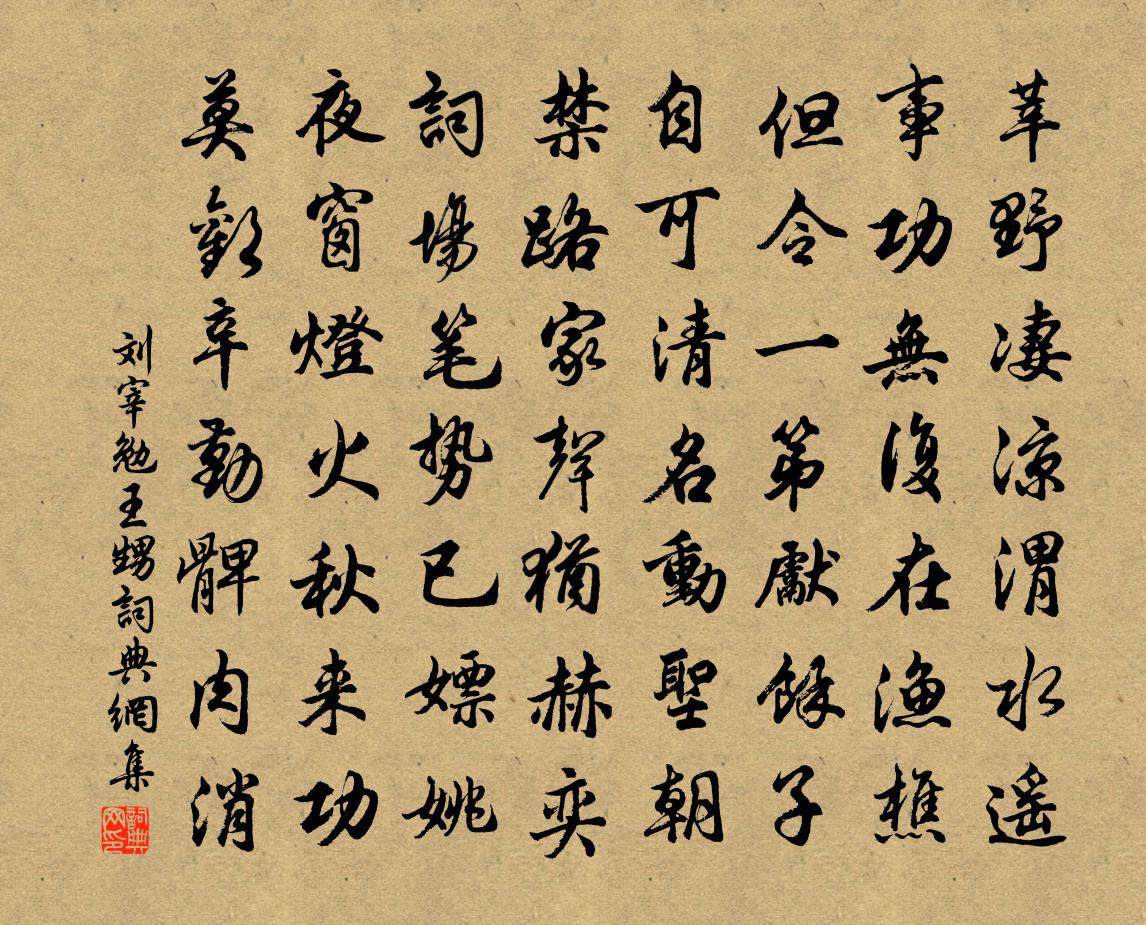 莘野凄凉渭水遥
事功無復在漁樵
但令一第獻餘子
自可清名動聖朝
禁路家聲猶赫奕
詞場笔势已嫖姚
夜窗燈火秋来功
莫歎辛勤髀肉消
刘宰勉王甥詞典網集
詞典网印